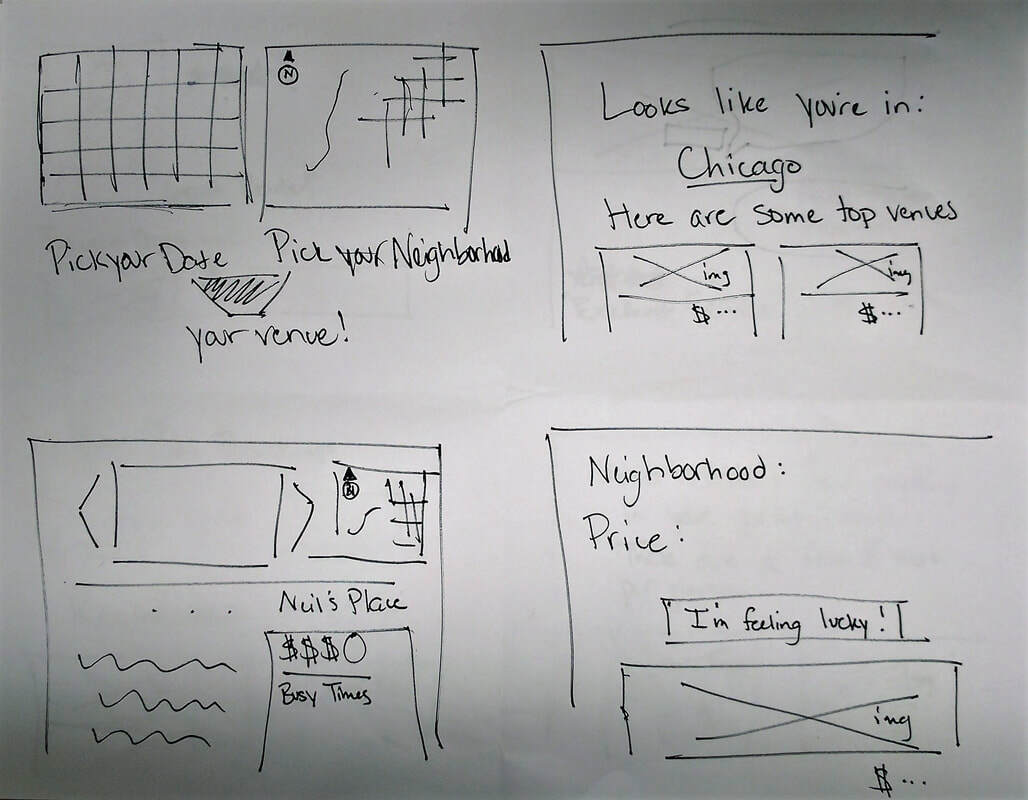 N
Pick your Date
Pick your Neighborhood
your venue!
Looks like you're in:
Chicago
Here are some top venues
img
img
$...
$...
N
Neil's Place
$$$O
Busy Times
Neighborhood:
Price:
I'm feeling lucky!
img
$...